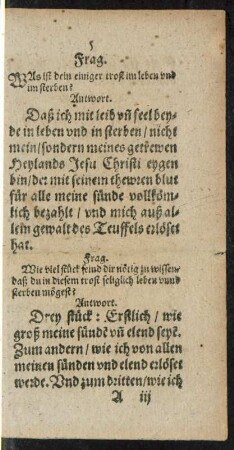 5
Frag.
WAs ist dein einiger trost im leben vnd
im sterben?
Antwort.
Daß ich mit leib vñ seel bey-
de in leben vnd in sterben / nicht
mein / sondern meines getrewen
Heylands Jesu Christi eygen
bin / der mit seinem thewren blut
für alle meine sünde vollköm̃-
lich bezahlt / vnd mich auß al-
lein gewalt des Teuffels erlöset
hat.
Frag.
Wie viel stück seind dir nötig zu wissen /
daß du in diesem trost seliglich leben vnnd
sterben mögest?
Antwort.
Drey stück: Erstlich / wie
groß meine sündẽ vñ elend seyẽ.
Zum andern / wie ich von allen
meinen sünden vnd elend erlöset
werde. Vnd zum dritten / wie ich
A iij